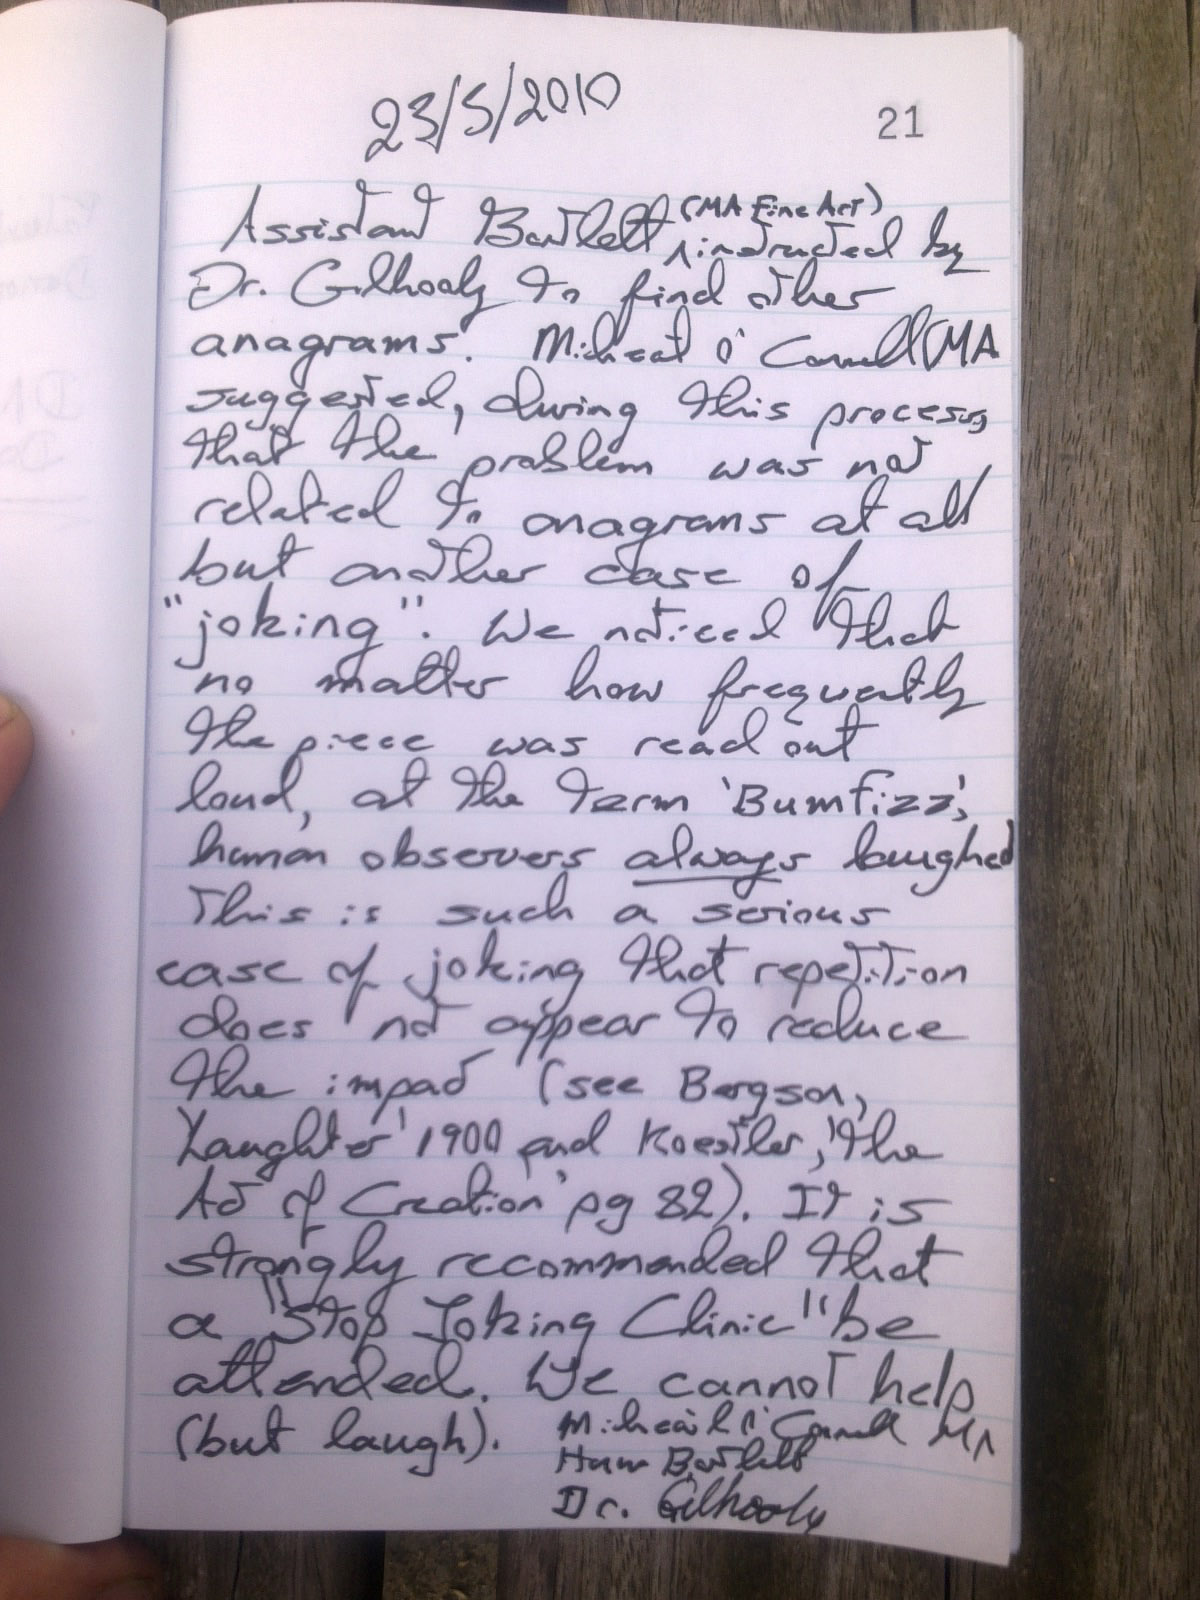 23/5/2010
21
Assistant Bartlett (MA Fine Art) instructed by
Dr. Gilhooly to find other
anagrams. Micheál O' Connell (MA
suggested, during this process,
that the problem was not
related to anagrams at all
but another case of
"joking". We noticed that
no matter how frequently
the piece was read out
loud, at the term 'Bumfizz',
human observers always laughed
This is such a serious
case of joking that repetition
does not appear to reduce
the impact (see Bergson,
'Laughter' 1900 and Koestler, 'The
Act of Creation' pg 82). It is
strongly recommended that
a "Stop Joking Clinic" be
attended. We cannot help
(but laugh).
Micheál O' Connell MA
Bartlett
Dr. Gilhooly